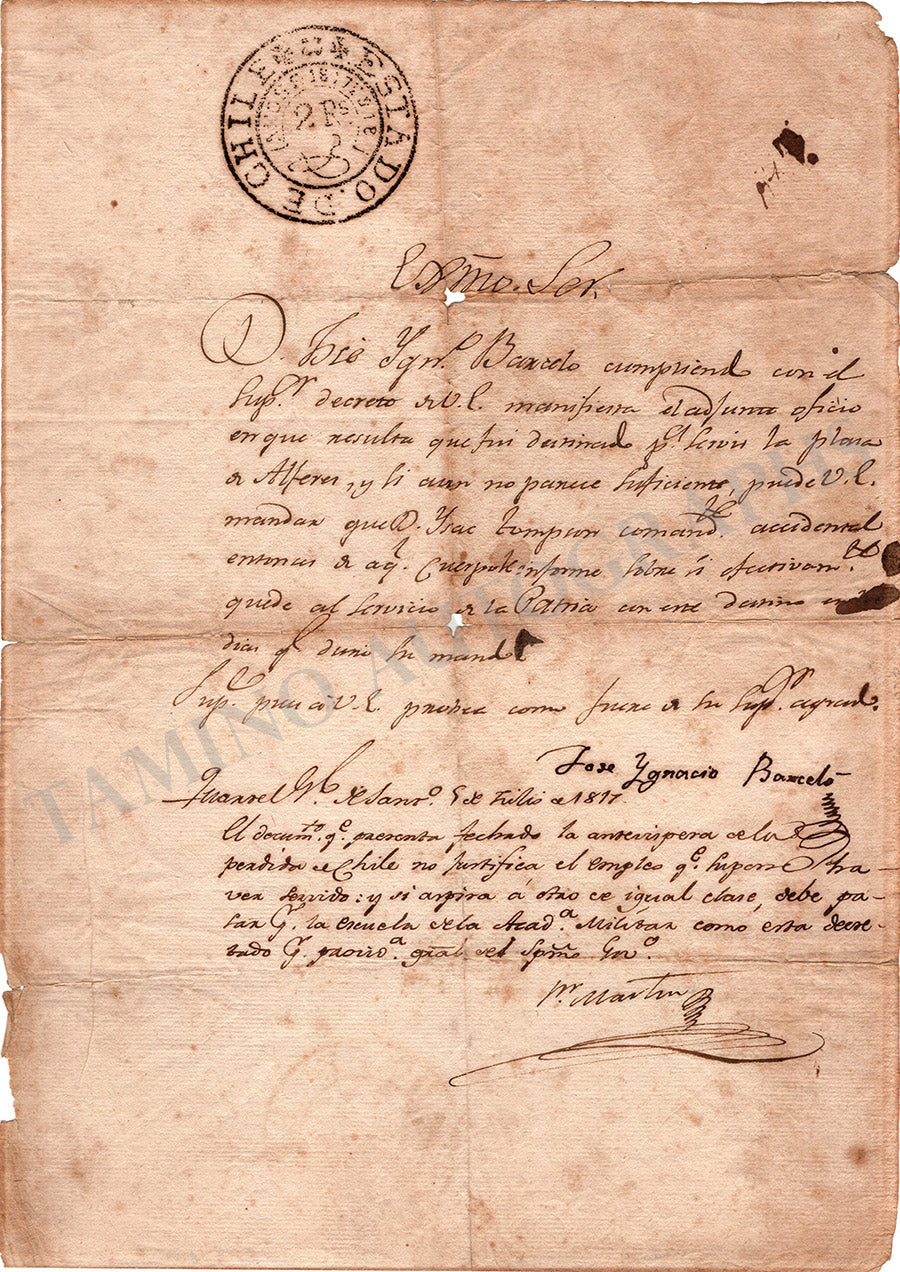 ESTADO. DE CHILE
2 Rs.
Exmo. Sor.
D. Jse Ygno. Barcelo cumpliend con el
Supr. decreto de V.E. manifiesta el adjunto oficio
en que resulta que fui destinado pa. servir la plasa
de Alferes, y si aun no parece suficiente, puede V.E.
mandar que D. Ysac tompson comande. accidental
entonces de aql. Cuerpo informe sobre si efectivamte.
quede al servicio de la Patria con este destino
dias qe
Supo. pues a V.E. provea como fuere de su Supr. agrad.
Jose Ygnacio Barceló
Quartel Gl. de Santo. 5 de Julio de 1817
El documto. qe. presenta fechado la antevispera de la
perdida de Chile no justifica el empleo qe. supone ha-
ver servido: y si aspira á otro de igual clase, debe pa-
sar pr. la escuela de la Acada. Militar como está decre-
tado pr. provida. gral del Spmo Gno.
Sn. Martin
TAMINO AUTOGRAPHS